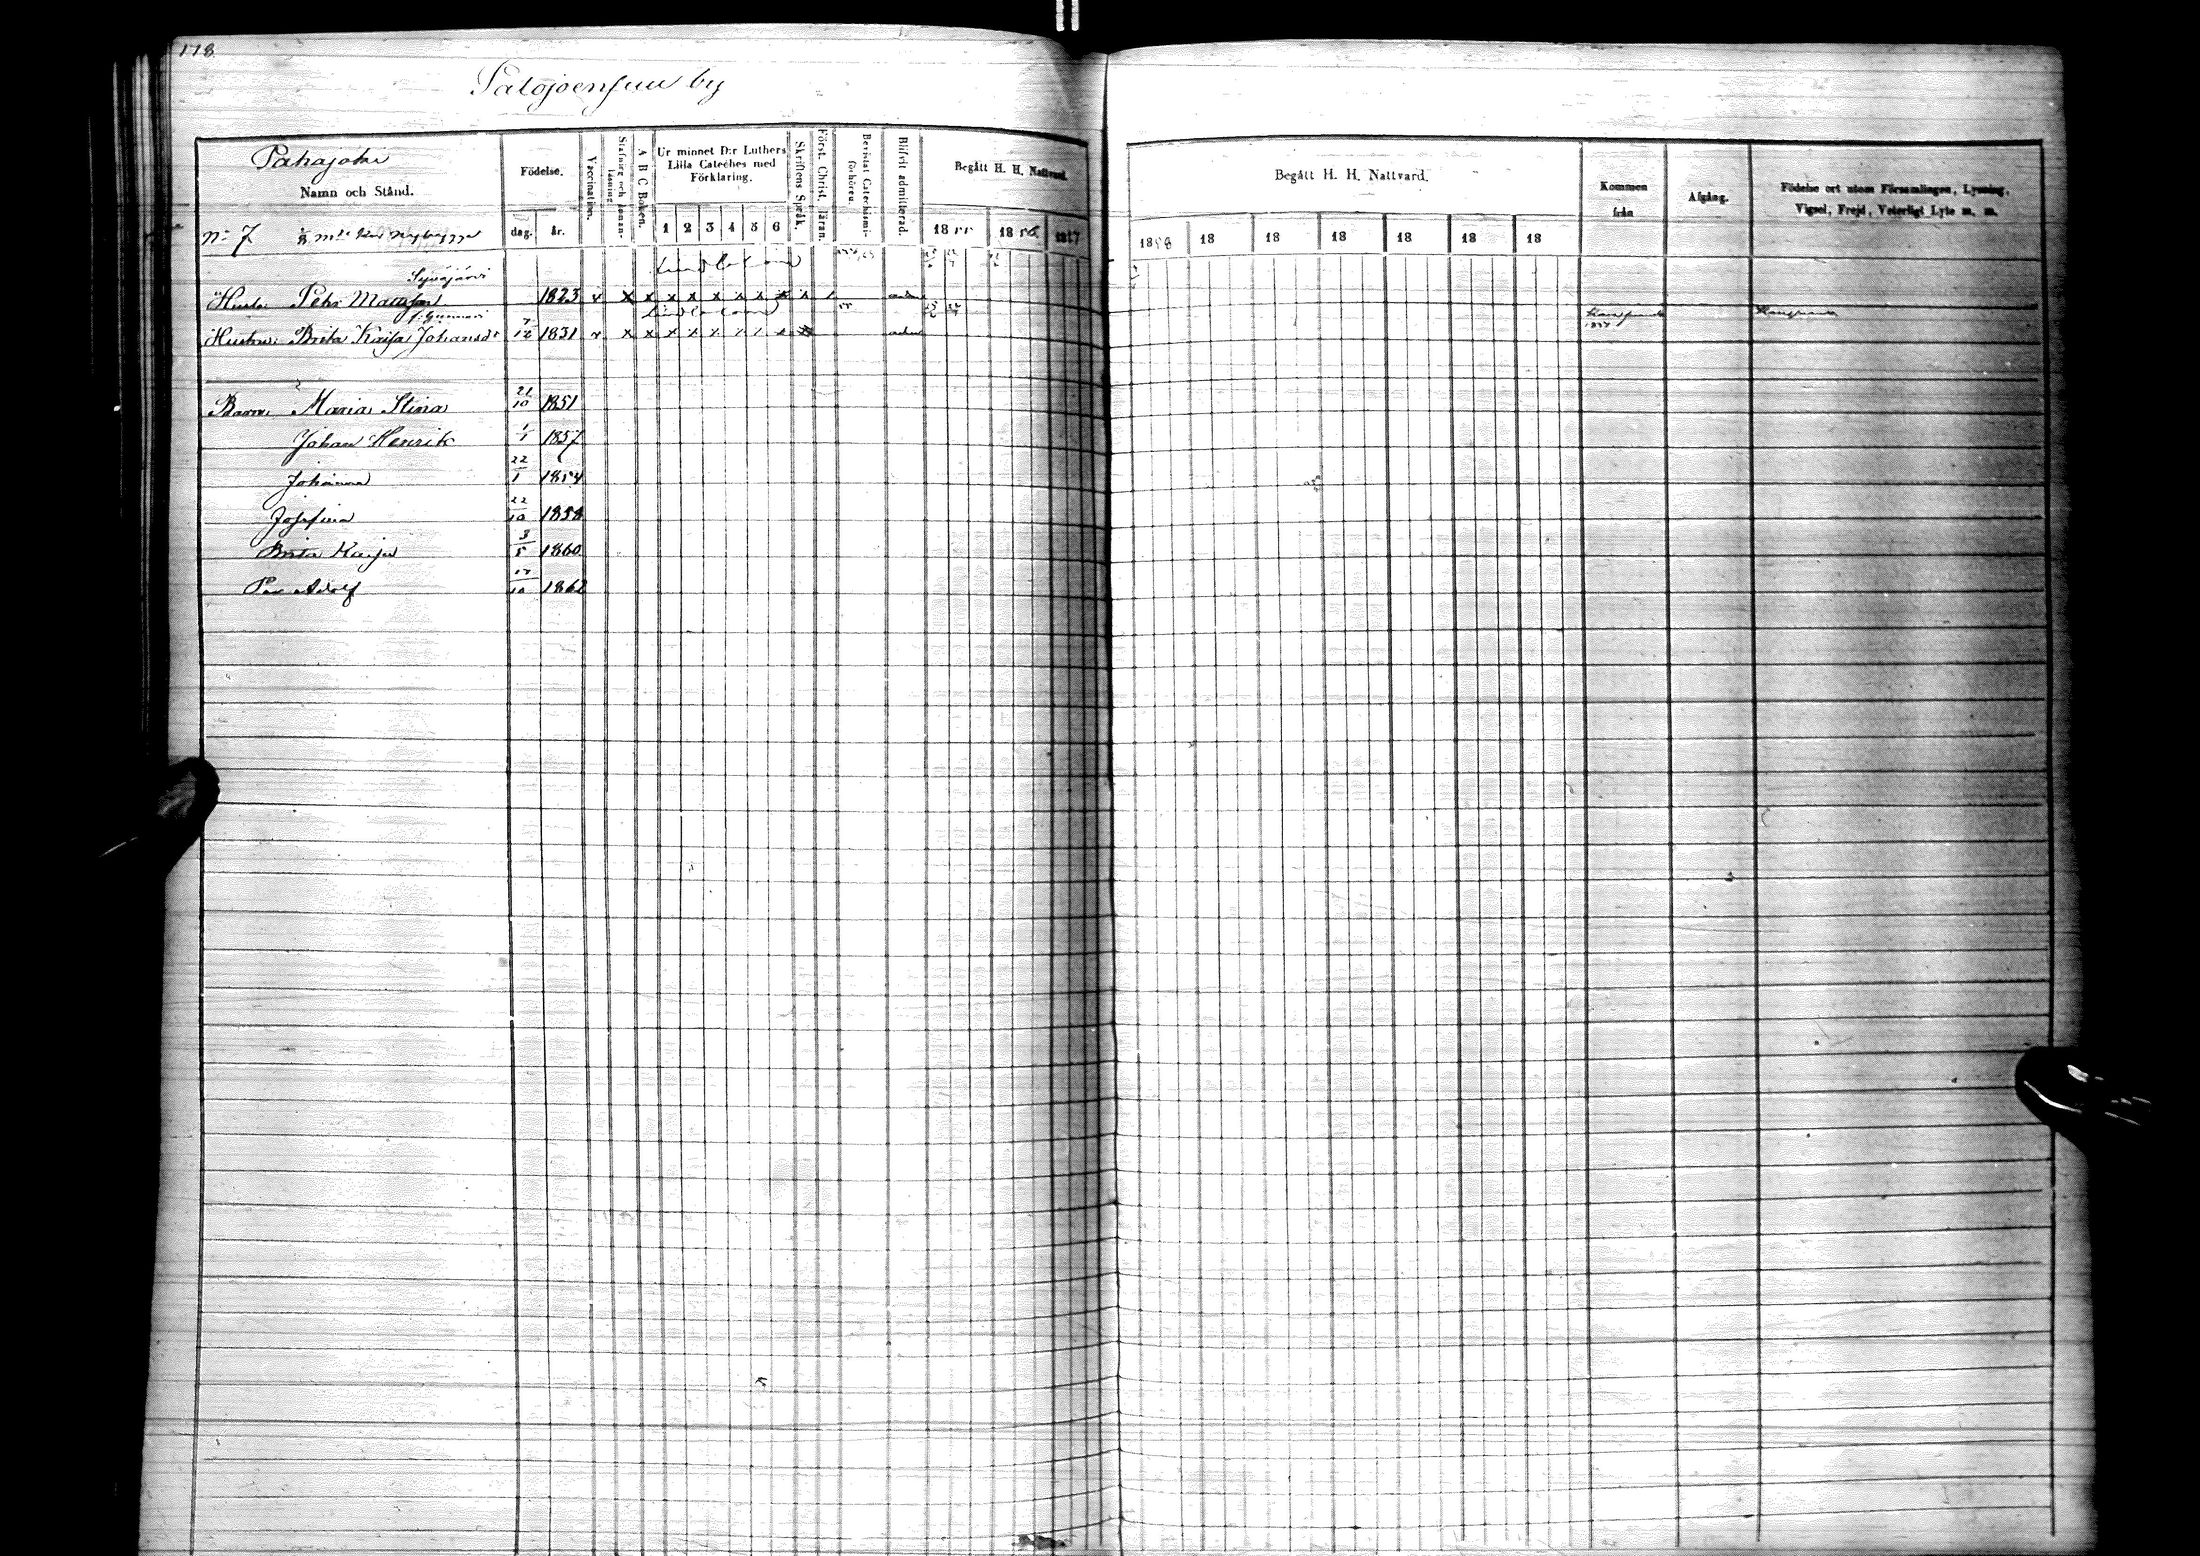 118.
Palojoensuu by
Pahajoki
Namn och Stånd.
Födelse.
dag. år.
Vaccination.
Stafning och innan-läsning
A B C Boken.
Ur minnet D:r Luthers
Lilla Cateches med
Förklaring.
1 2 3 4 5 6
Skriftens Språk.
Först. Christ. läran.
Bevistat Catechismi-förhören.
Blifvit admitterad.
Begått H. H. Nattvard.
1855 1856 1857
Begått H. H. Nattvard.
1858 18 18 18 18 18 18
Kommen
från
Afgång.
Födelse ort utom Församlingen, Lysning,
Vigsel, Frejd, Veterligt Lyte m. m.
No 7
Syväjärvi
Petr Mattsson 1823
Hustru Brita Kaisa Johansdr 7/12 1831
Barn Maria Stina 21/10 1851
Johan Henrik 1/1 1857
Johanna 22/1 1854
Josefina 22/10 1858
Brita Kaisa 3/5 1860
Per Adolf 1862